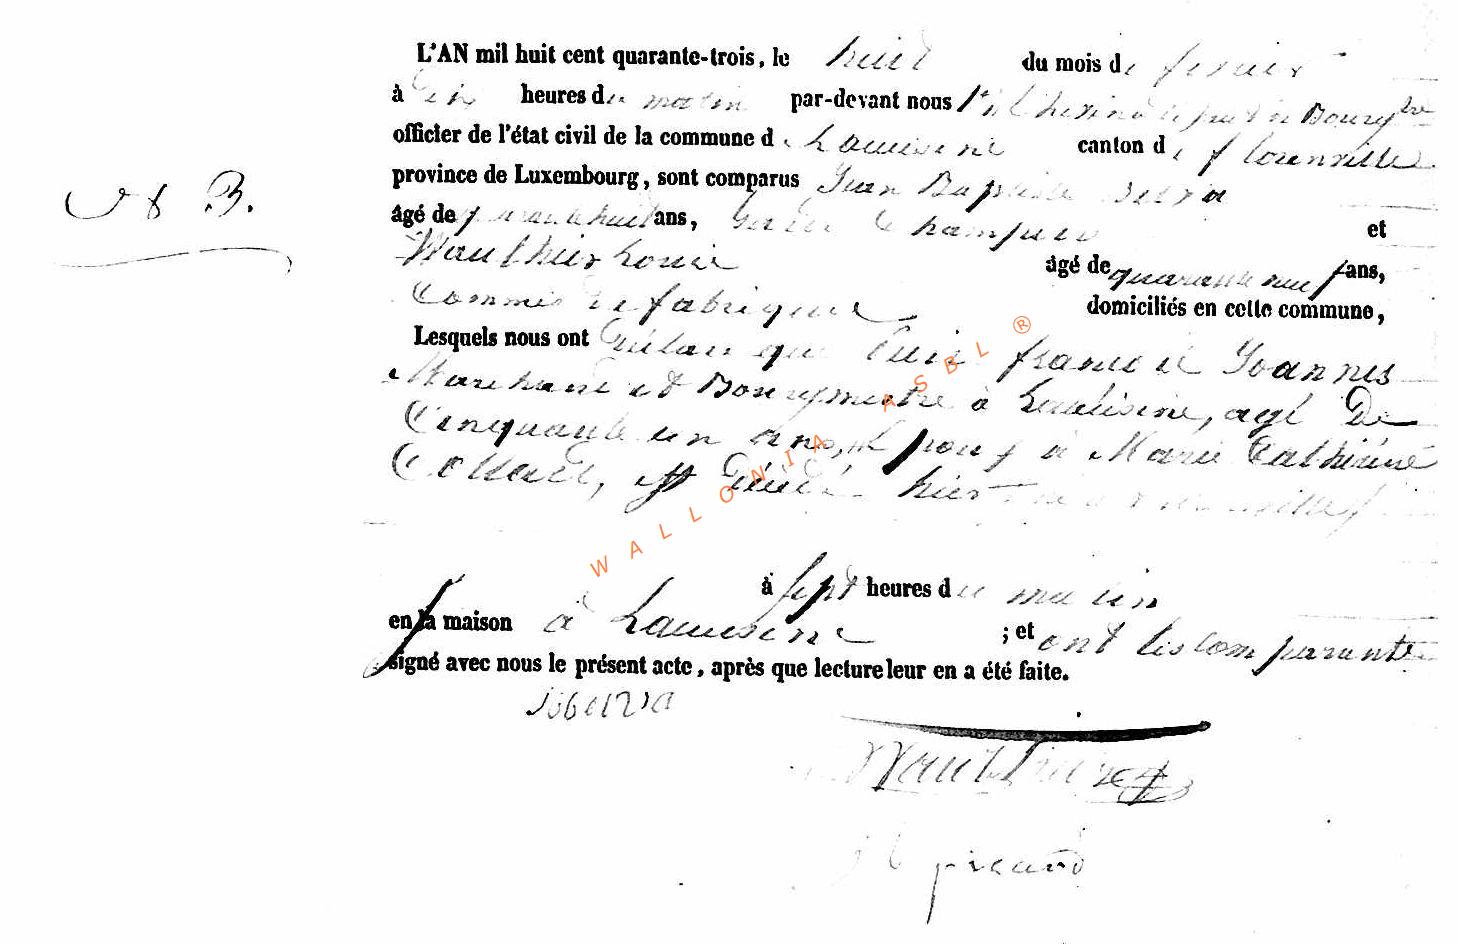 L'AN mil huit cent quarante-trois, le huit du mois de fevrier
à heures du matin par-devant nous l'échevin Bourgtre
officier de l'état civil de la commune de Lacuisine canton de florenville
province de Luxembourg, sont comparus Jean Baptiste
âgé de quarante huit ans, Garde Champetre et
N° 3.
Wauthier Louis âgé de quarante neuf ans,
Commis de fabrique domiciliés en cette commune,
Lesquels nous ont déclaré que Louis francois Joannes
Marchand et Bourgmestre à Lacuisine, agé De
Cinquante un ans, Epoux à Marie Catherine
Collard, est Décédé hier
à sept heures du matin
en sa maison à Lacuisine ; et ont les comparants
signé avec nous le présent acte, après que lecture leur en a été faite.
Wauthier
picard
WALLONIA ASBL ®